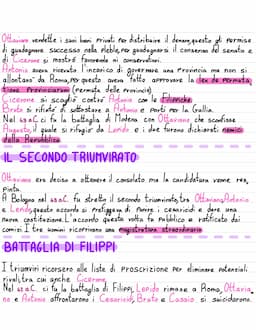 Ottaviano vendette i suoi beni privati per distribuire il denaro, questo gli permise
di guadagnare successo nella plebe, per guadagnarsi il consenso del senato e
di Cicerone si mostrò favorevole ai conservatori.
Antonio aveva ricevuto l'incarico di governare una provincia ma non si
allontanò da Roma, per questo aveva fatto approvare la lex de permuta-
tione provinciarum (permuta delle provincie).
Cicerone si scagliò contro Antonio con le Filippiche.
Bruto si rifiutò di sottostare a Antonio e partì per la Gallia.
Nel 43 a.C. ci fu la battaglia di Modena con Ottaviano che sconfisse
il quale si rifugiò da Lepido e i due furono dichiarati nemici
della Repubblica
IL SECONDO TRIUMVIRATO
Ottaviano era deciso a ottenere il consolato ma la candidatura venne res-
pinta.
A Bologna nel 43 a.C. fu stretto il secondo triumvirato, tra Ottaviano, Antonio
e Lepido, questo accordo si prefiggeva di punire i cesaricidi e dare una
nuova costituzione. L'accordo questa volta fu pubblico e ratificato dai
comizi. I tre uomini ricoprirono una magistratura straordinaria
BATTAGLIA DI FILIPPI
I triumviri ricorsero alle liste di proscrizione per eliminare potenziali
rivali, tra cui anche Cicerone.
Nel 42 a.C. ci fu la battaglia di Filippi, Lepido rimase a Roma, Ottavia-
no e Antonio affrontarono i Cesaricidi, Bruto e Cassio si suicidarono.